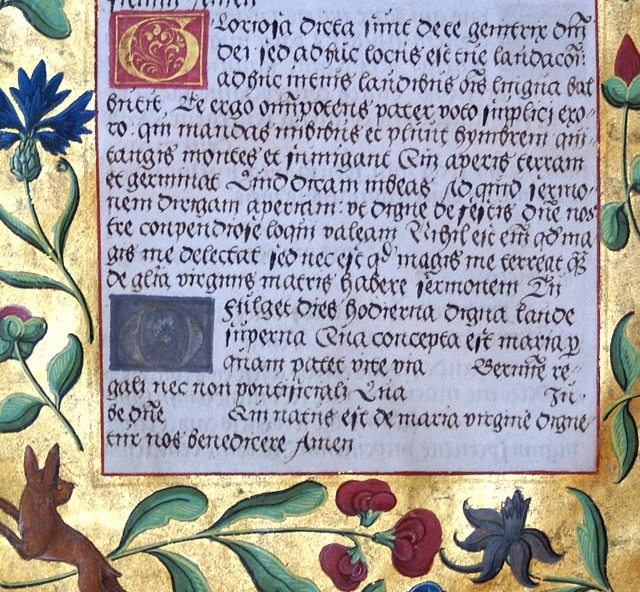 Gloriosa dicta sunt de te genitrix dm̄
dei sed adhuc locus est tue laudacōī.
adhuc intenis laudibus oīs lingua bal
butit. Te ergo om̄potens pater voto suplici exo-
ro. qui mandas nubibus et pluut hymbrem qui
tangis montes et fumigant Qui aperis terram
et germinat Quid dicam iubeas Ad quid sermo-
nem dirigam aperiam. vt digne de festis dn̄e nos
tre conpendiose loqui valeam Nihil est em̄ qd̄ ma
gis me delectat sed nec est qd̄ magis me terreat q̄
de gl̄ia virginis matris habere sermonem Tu
Fulget dies hodierna digna laude
superna Qua concepta est maria p
quam patet vite via Bernine re-
gali nec non pontificiali Qua Ju-
be dn̄e Qui natus est de maria virgine digne
tur nos benedicere Amen